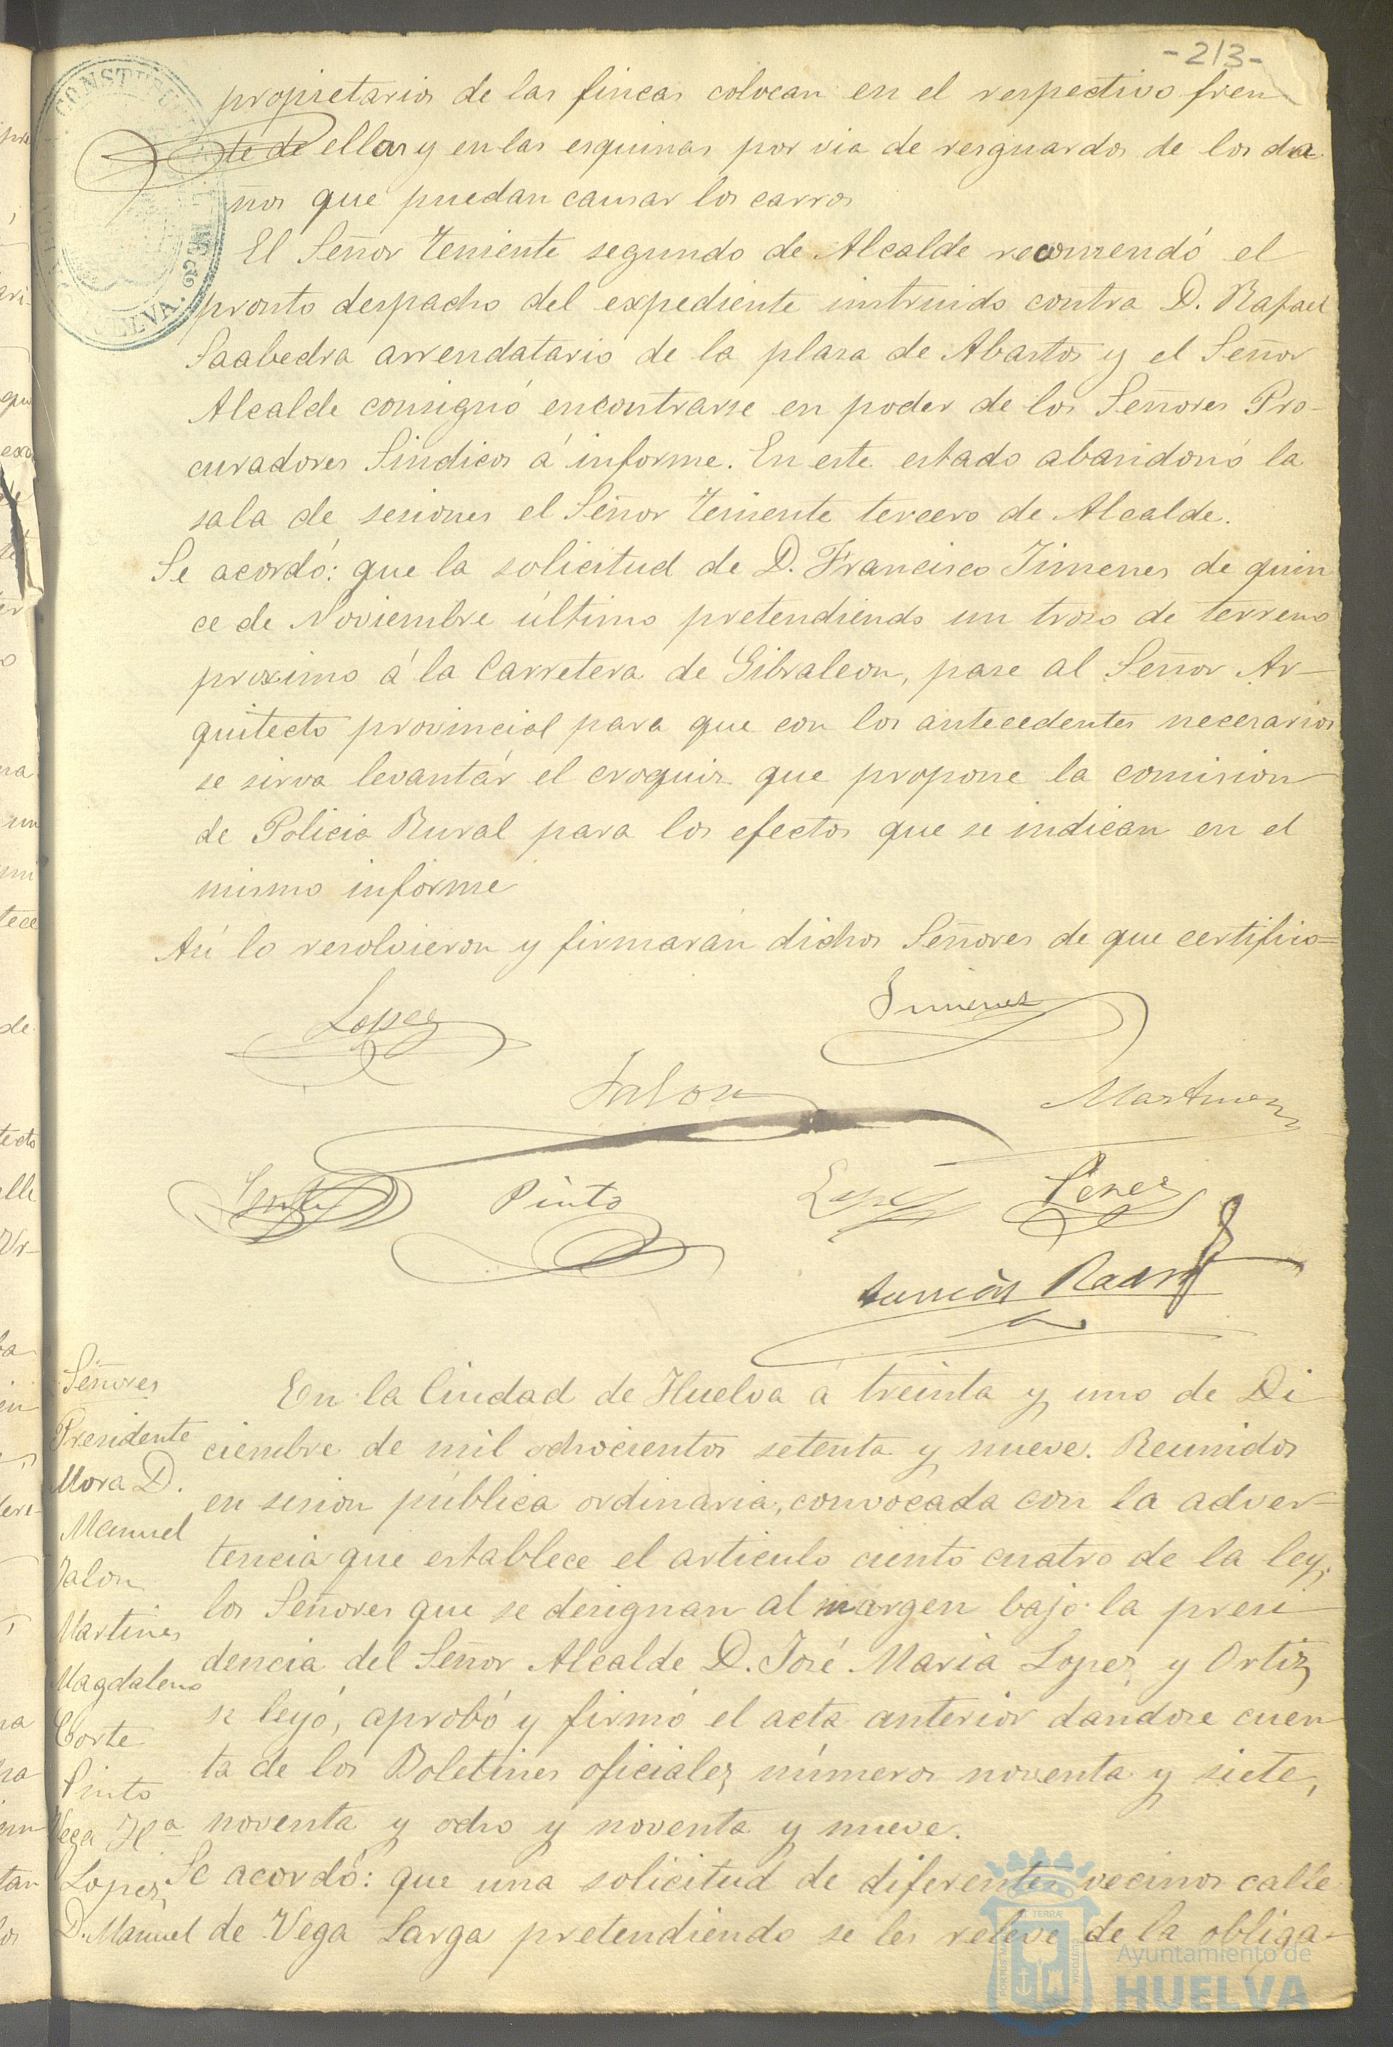 -213-
propietarios de las fincas colocan en el respectivo fren
te de ellas y en las esquinas por via de resguardos de los da
ños que puedan causar los carros
El Señor Teniente segundo de Alcalde recomendó el
pronto despacho del expediente instruido contra D. Rafael
Saabedra arrendatario de la plaza de Abastos y el Señor
Alcalde consignó encontrarse en poder de los Señores Pro-
curadores Sindicos á informe. En este estado abandonó la
sala de sesiones el Señor Teniente tercero de Alcalde.
Se acordó: que la solicitud de D. Francisco Jimenes de quin
ce de Noviembre último pretendiendo un troso de terreno
proximo á la Carretera de Gibraleon, pase al Señor Ar-
quitecto provincial para que con los antecedentes necesarios
se sirva levantár el croquis que propone la comision
de Policia Rural para los efectos que se indican en el
mismo informe
Así lo resolvieron y firmarán dichos Señores de que certifico=
Lopez
Jimenez
Jalon
Martinez
Pinto
Lopez
Perez
Señores
Presidente
Mora D.
Manuel
Jalon
Martines
Magdaleno
Corte
Pinto
Vega Hª
Lopez
D. Manuel
En la Ciudad de Huelva á treinta y uno de Di
ciembre de mil ochocientos setenta y nueve. Reunidos
en sesion pública ordinaria, convocada con la adver-
tencia que establece el articulo ciento cuatro de la ley,
los Señores que se designan al margen bajo la presi
dencia del Señor Alcalde D. José Maria Lopez y Ortiz
se leyó, aprobó y firmó el acta anterior dandose cuen
ta de los Boletines oficiales números noventa y siete,
noventa y ocho y noventa y nueve.
Se acordó: que una solicitud de diferentes vecinos calle
de Vega Larga pretendiendo se les releve de la obliga-
Ayuntamiento de
HUELVA